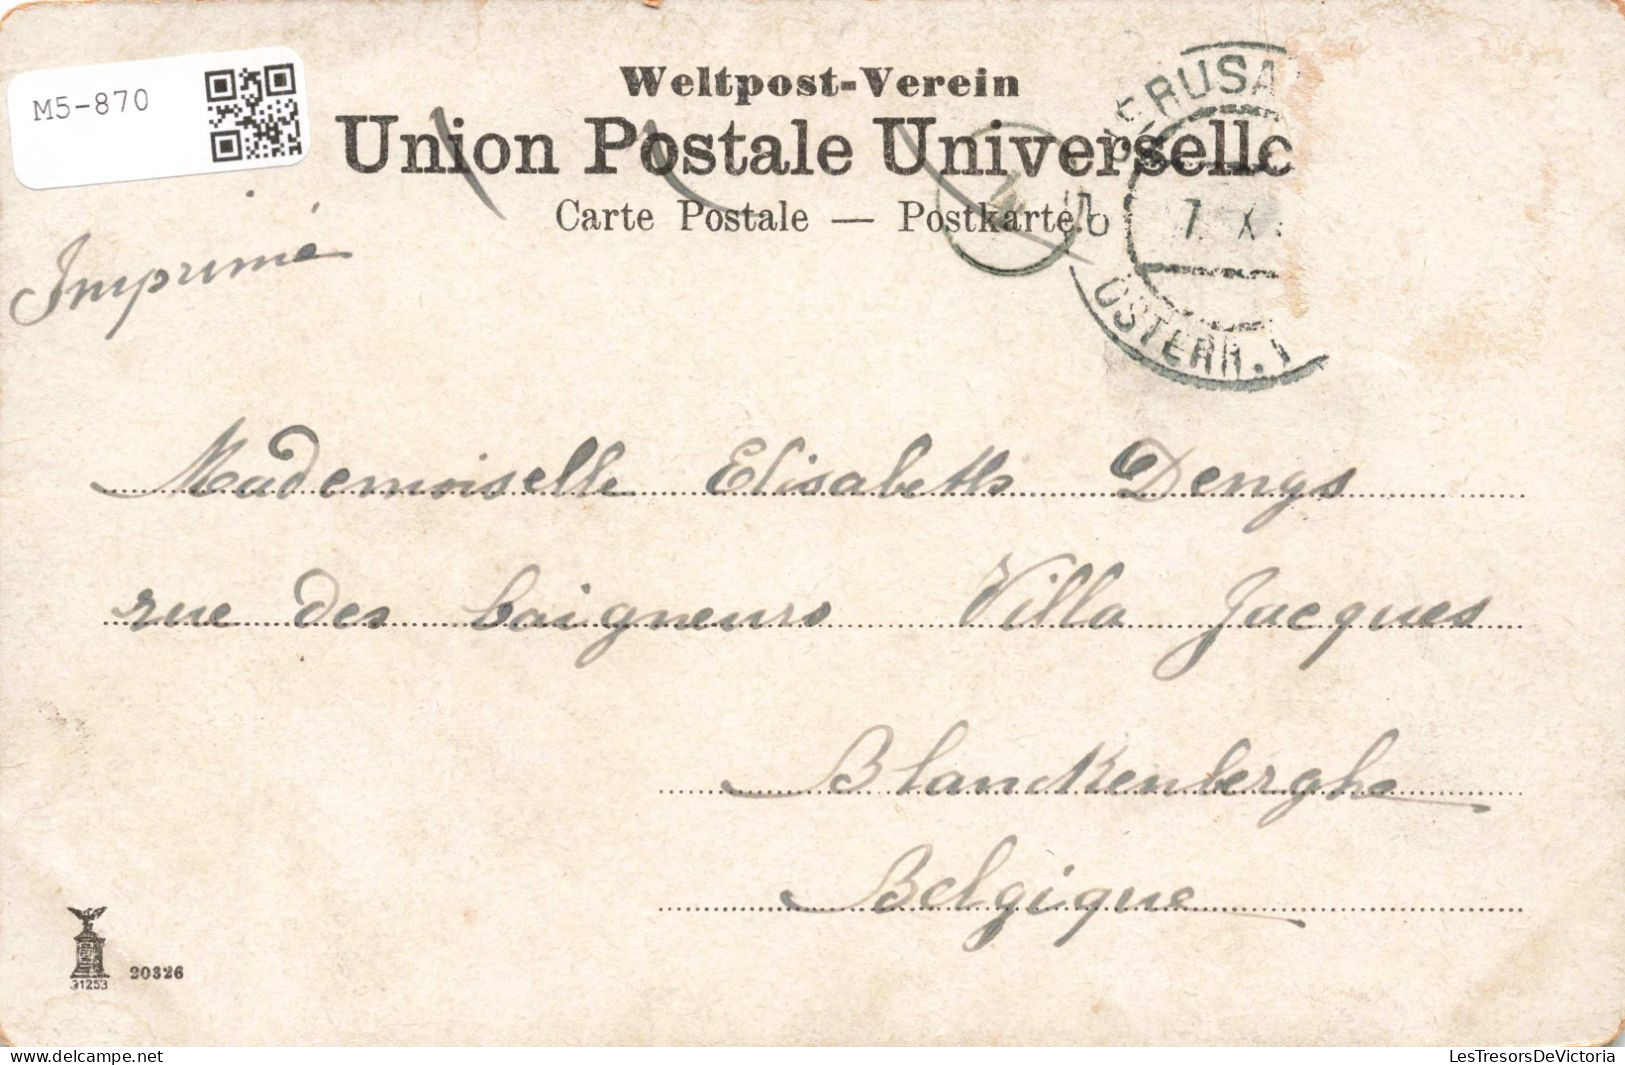 M5-870
Weltpost-Verein
Union Postale Universelle
Carte Postale — Postkarte.
ERUSA
7. X
ÖSTERR.
Imprimé
Mademoiselle Elisabeth Dengs
rue des baigneurs Villa Jacques
Blanckenberghe
Belgique
31253
20326
Delcampe.net
LesTresorsDeVictoria